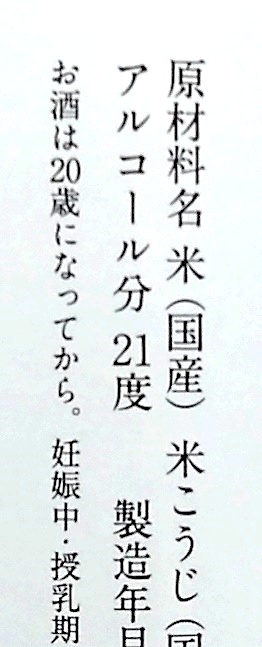 原材料名 米（国産） 米こうじ（国
アルコール分 21度 製造年月
お酒は20歳になってから。妊娠中・授乳期